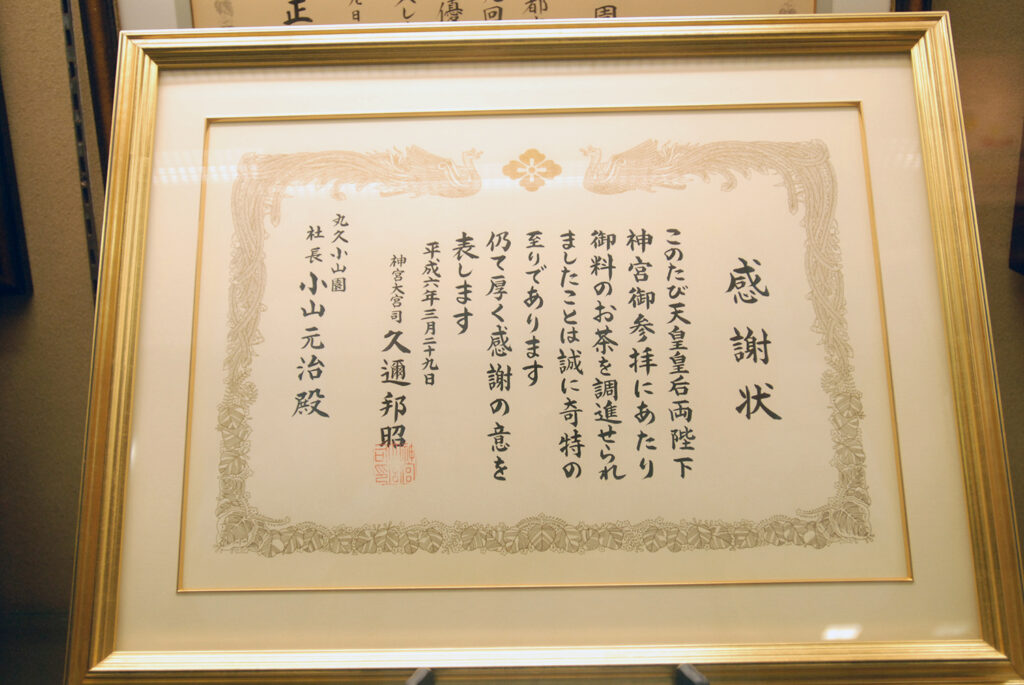 感謝状
このたび天皇皇后両陛下
神宮御参拝にあたり
御料のお茶を調進せられ
ましたことは誠に奇特の
至りであります
仍て厚く感謝の意を
表します
平成六年三月二十九日
神宮大宮司 久邇邦昭
丸久小山園
社長 小山元治殿